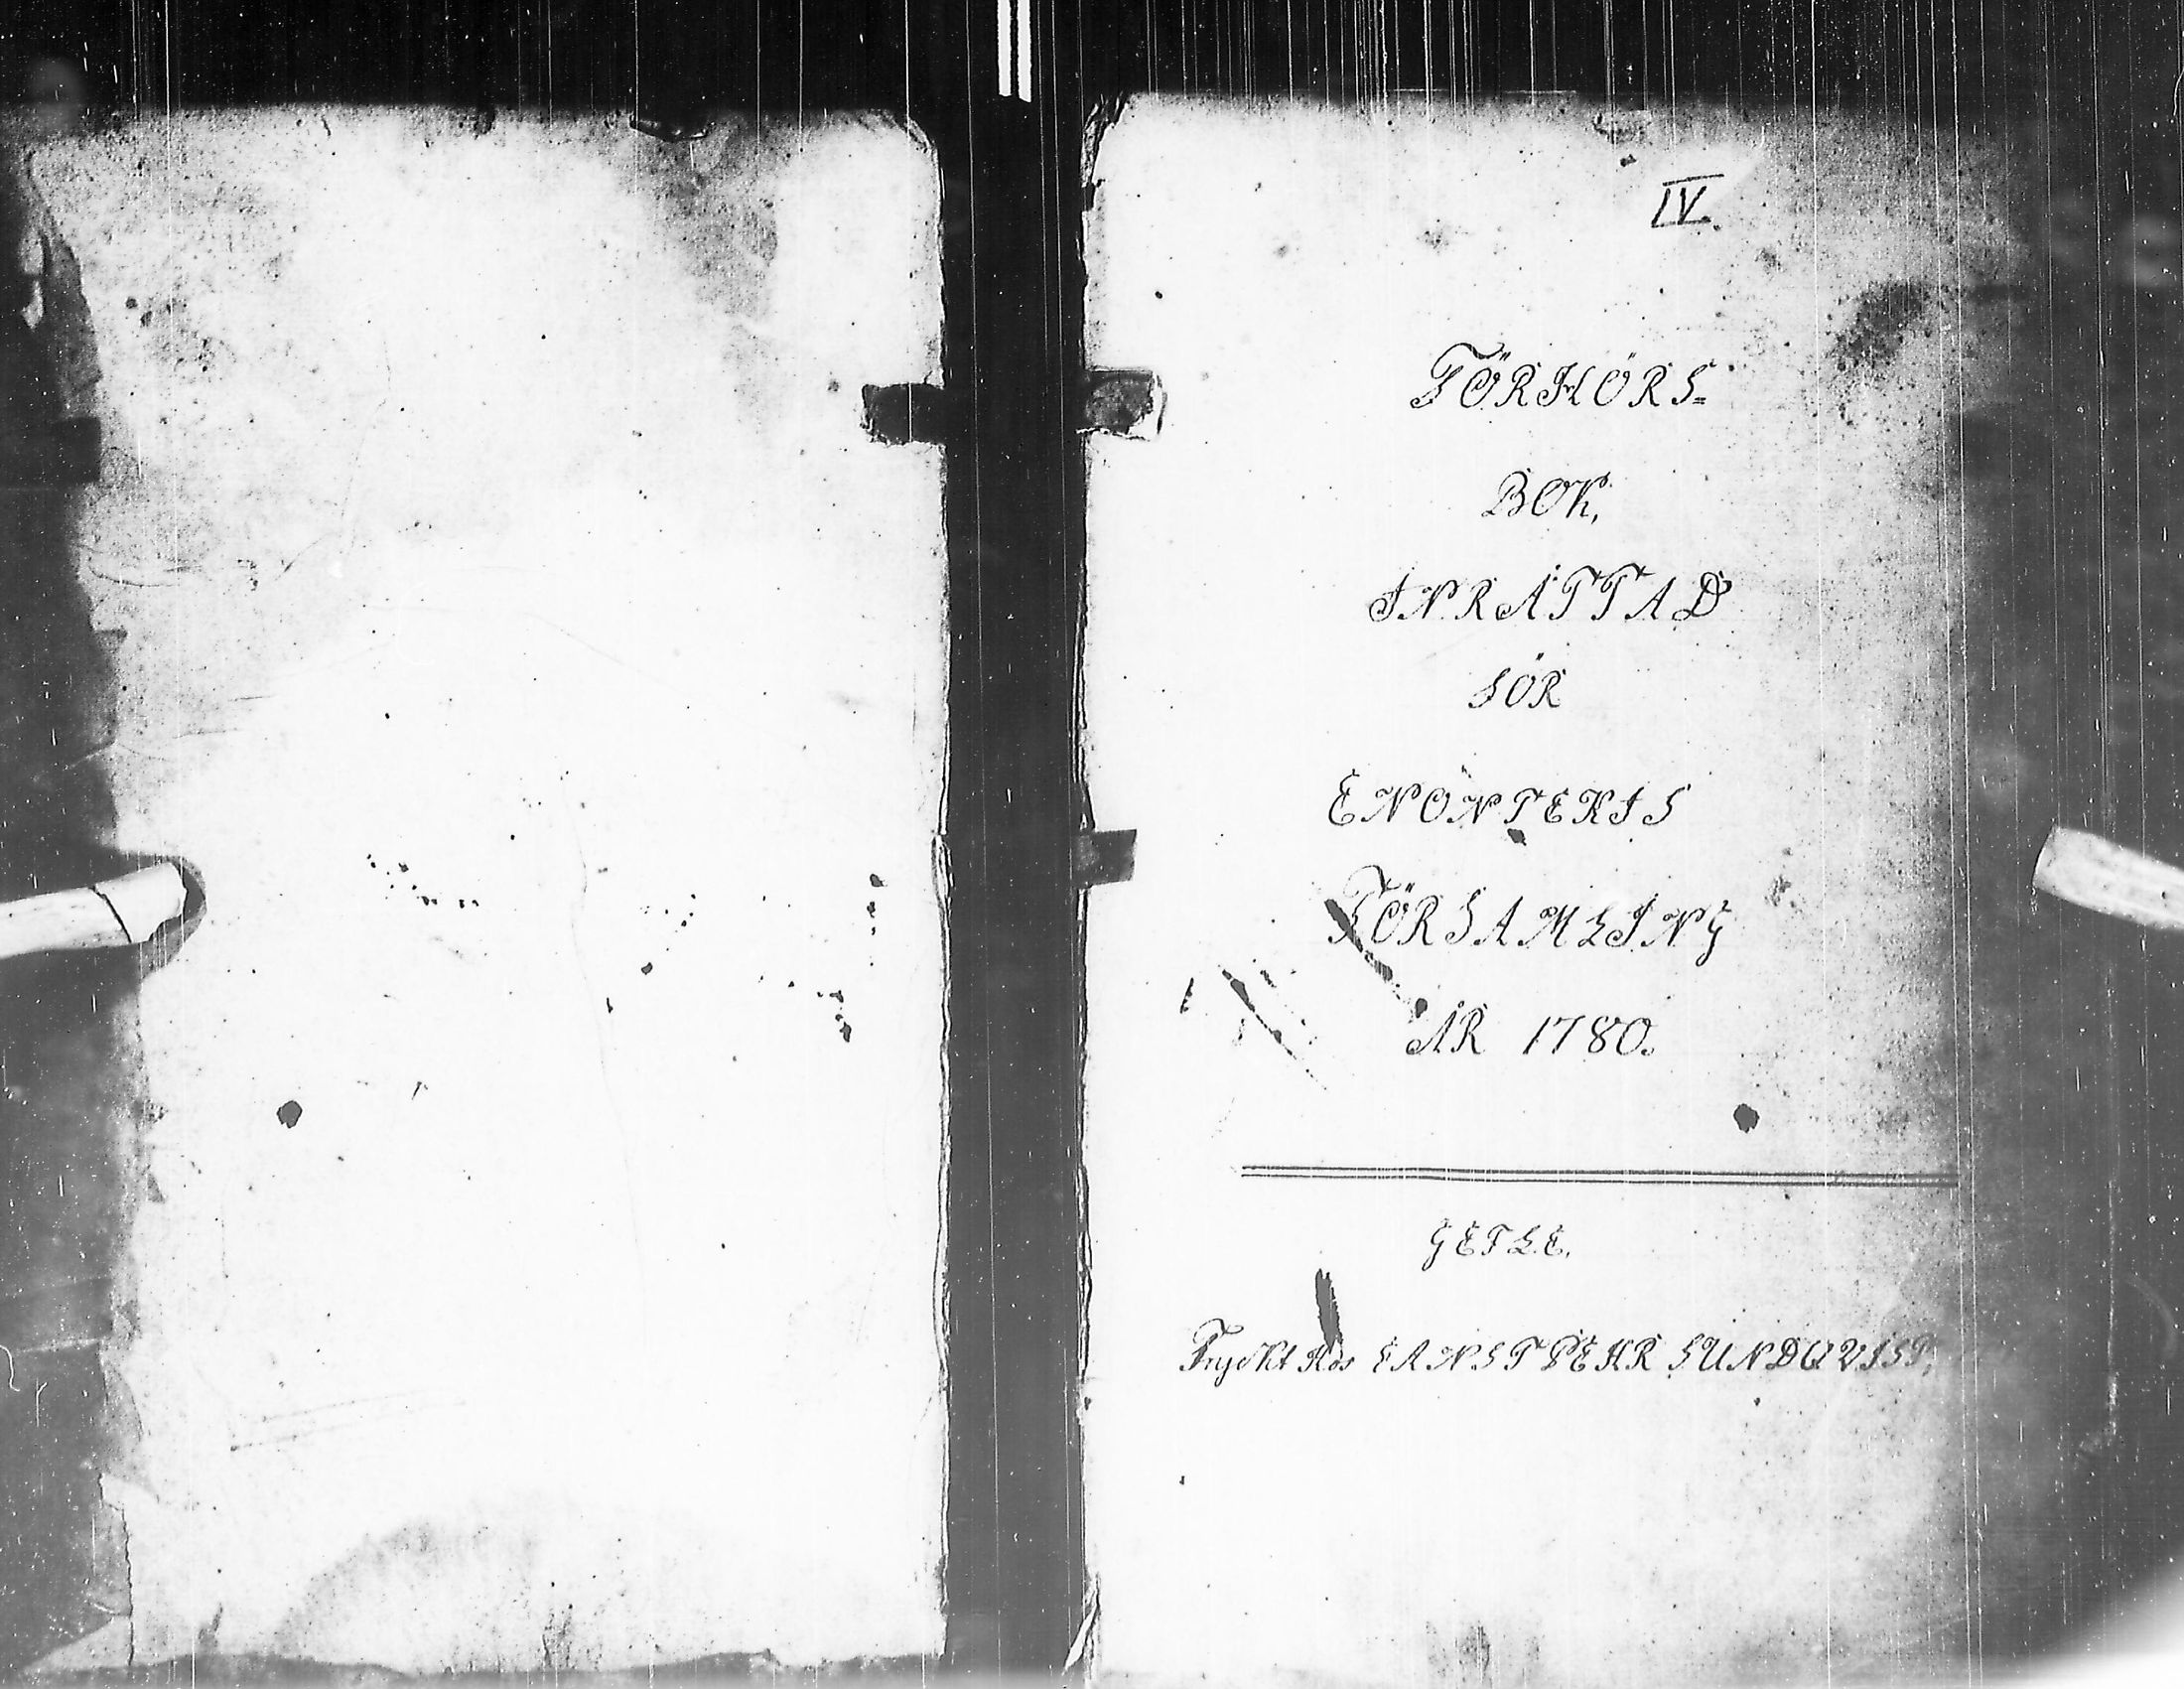 IV.
FÖRHÖRS=
BOK,
INRÄTTAD
FÖR
ENONTEKIS
FÖRSAMLING
ÅR 1780.
GEFLE.
Tryckt Hos ERNST PEHR SUNDQVIST,